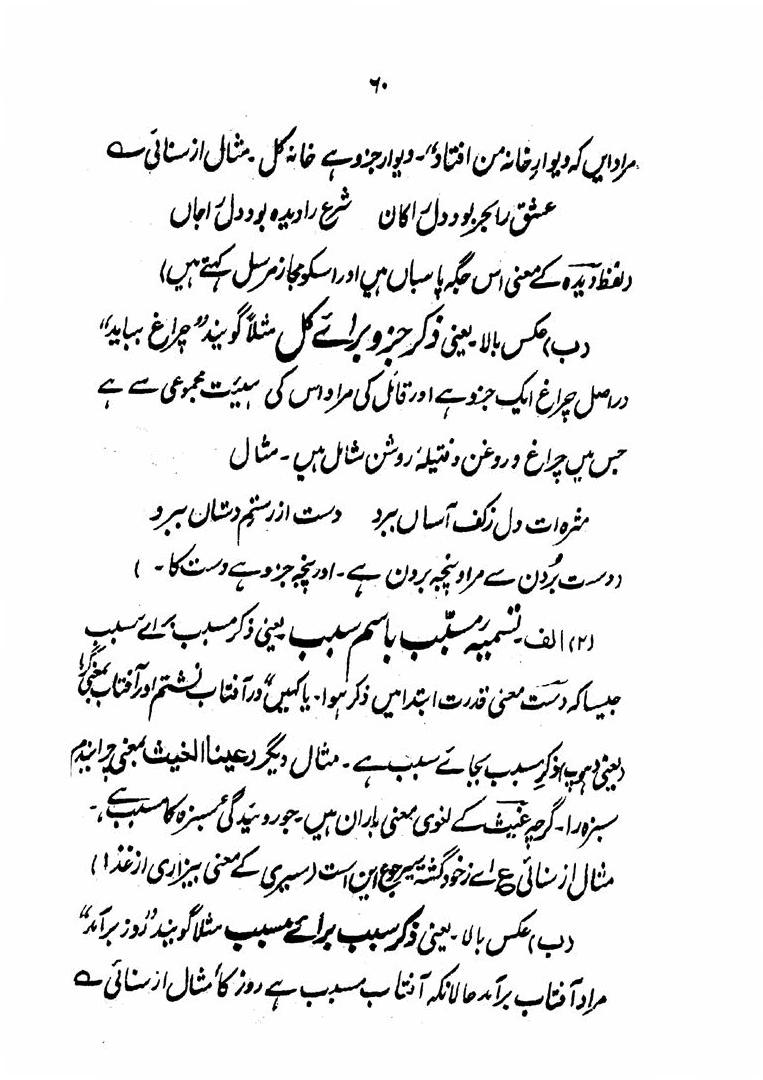 ۶۰
مراد ایں کہ دیوارِ خانہ من افتاد"۔ دیوار جزو ہے خانہ کل ۔ مثال از سنائی ؎
عشق را بحر بود دل را کان شرع را دیدہ بود دل را جاں
(لفظ دیدہ کے معنی اس جگہ پاسباں ہیں اور اسکو مجاز مرسل کہتے ہیں)
(ب) عکس بالا۔ یعنی ذکر جزو برائے کل مثلاً گویند "چراغ بیاید"
دراصل چراغ ایک جزو ہے اور قائل کی مراد اس کی ہیئت مجموعی سے ہے
جس میں چراغ و روغن و فتیلۂ روشن شامل ہیں ۔ مثال
مژہ ات دل زکف آساں ببرد دست از رستم دستان ببرد
(دست بُردن سے مراد پنجہ بردن ہے ۔ اور پنجہ جزو ہے دست کا ۔ )
(۲) الف۔ تسمیہ مسبّب باسم سبب یعنی ذکر مسبب برائے سبب
جیسا کہ دست معنی قدرت ابتدا میں ذکر ہوا۔ یا کہیں "در آفتاب نشستم اور آفتاب بمعنی گرما
(یعنی دھوپ) ذکرِ مسبب بجائے سبب ہے ۔ مثال دیگر رعینا الغیث بمعنی چرانیدم
سبزہ را۔ گرچہ غیث کے لغوی معنی باران ہیں۔ جو روئیدگیٔ سبزہ کا سبب ہے ۔
مثال از سنائی ع اے زخود گشتہ سیر جوع این است (سیری کے معنی بیزاری از غذا)
(ب) عکس بالا۔ یعنی ذکر سبب برائے مسبب مثلاً گویند "روز برآمد"
مراد آفتاب برآمد حالانکہ آفتاب مسبب ہے روز کا مثال از سنائی ؎